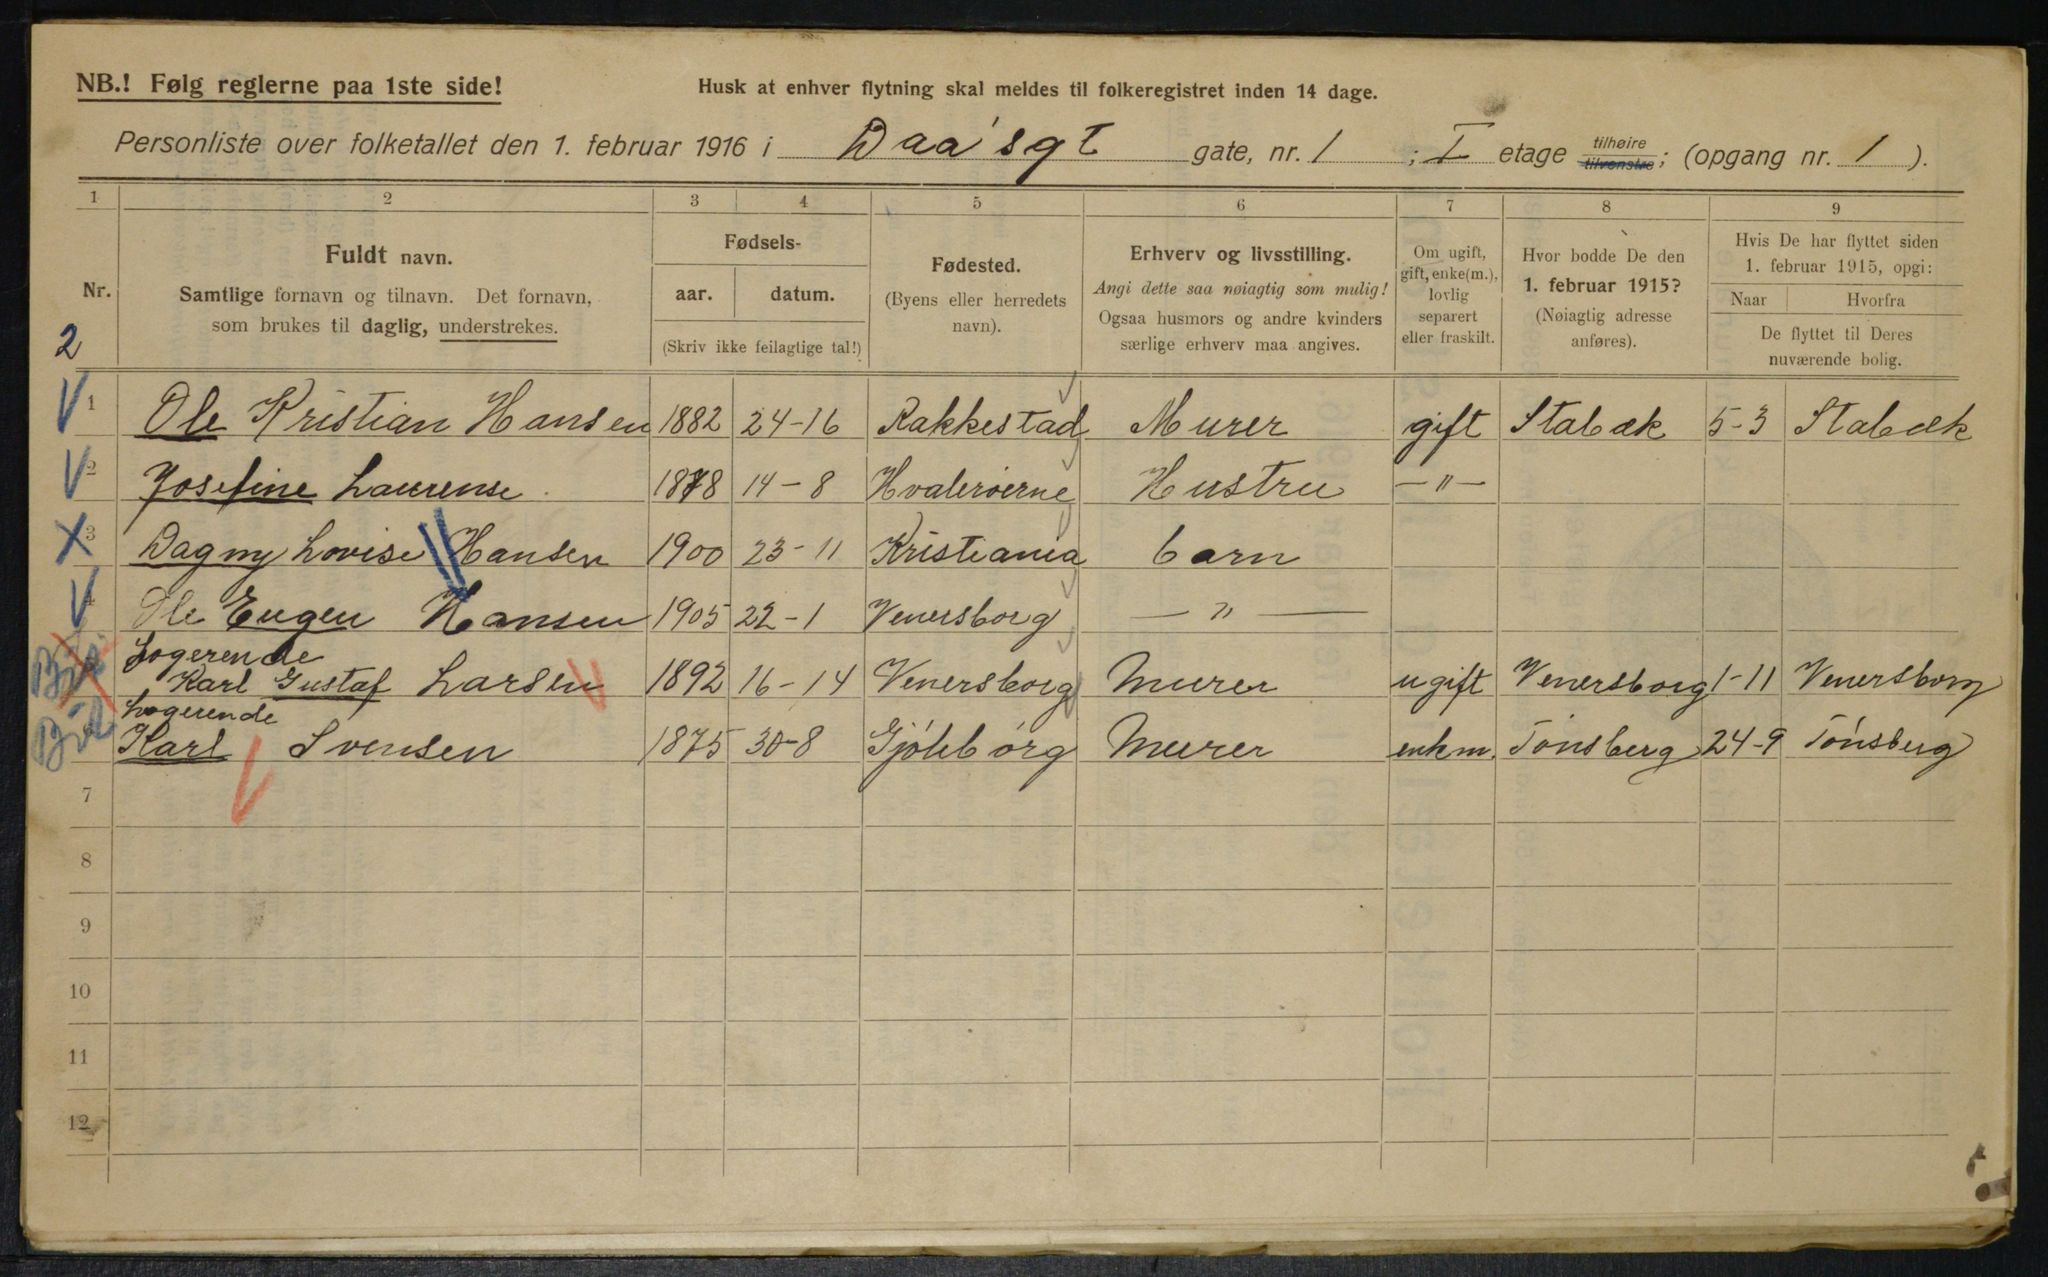 NB.! Følg reglerne paa 1ste side!
Husk at enhver flytning skal meldes til folkeregistret inden 14 dage.
Personliste over folketallet den 1. februar 1916 i Daa'sgt gate, nr. 1 ; I etage tilhøire tilvenstre; (opgang nr. 1 ).
1 2 3 4 5 6 7 8 9
Nr.
2
Fuldt navn.
Samtlige fornavn og tilnavn. Det fornavn,
som brukes til daglig, understrekes.
Fødsels-
aar. datum.
(Skriv ikke feilagtige tal!)
Fødested.
(Byens eller herredets
navn).
Erhverv og livsstilling.
Angi dette saa nøiagtig som mulig!
Ogsaa husmors og andre kvinders
særlige erhverv maa angives.
Om ugift,
gift, enke(m.),
lovlig
separert
eller fraskilt.
Hvor bodde De den
1. februar 1915?
(Nøiagtig adresse
anføres).
Hvis De har flyttet siden
1. februar 1915, opgi:
Naar Hvorfra
De flyttet til Deres
nuværende bolig.
1 Ole Kristian Hansen 1882 24-16 Rakkestad Murer gift Stabæk 5-3 Stabæk
2 Josefine Laurense 1878 14-8 Hvalerøerne Hustru -"-
3 Dagny Lovise Hansen 1900 23-11 Kristiania barn
4 Ole Eugen Hansen 1905 22-1 Venersborg - " -
Logerende
Karl Gustaf Larsen 1892 16-14 Venersborg Murer ugift Venersborg 1-11 Venersborg
Logerende
Karl Svensen 1875 30-8 Gjøtebørg Murer enkm. Tønsberg 24-9 Tønsberg
7
8
9
10
11
12